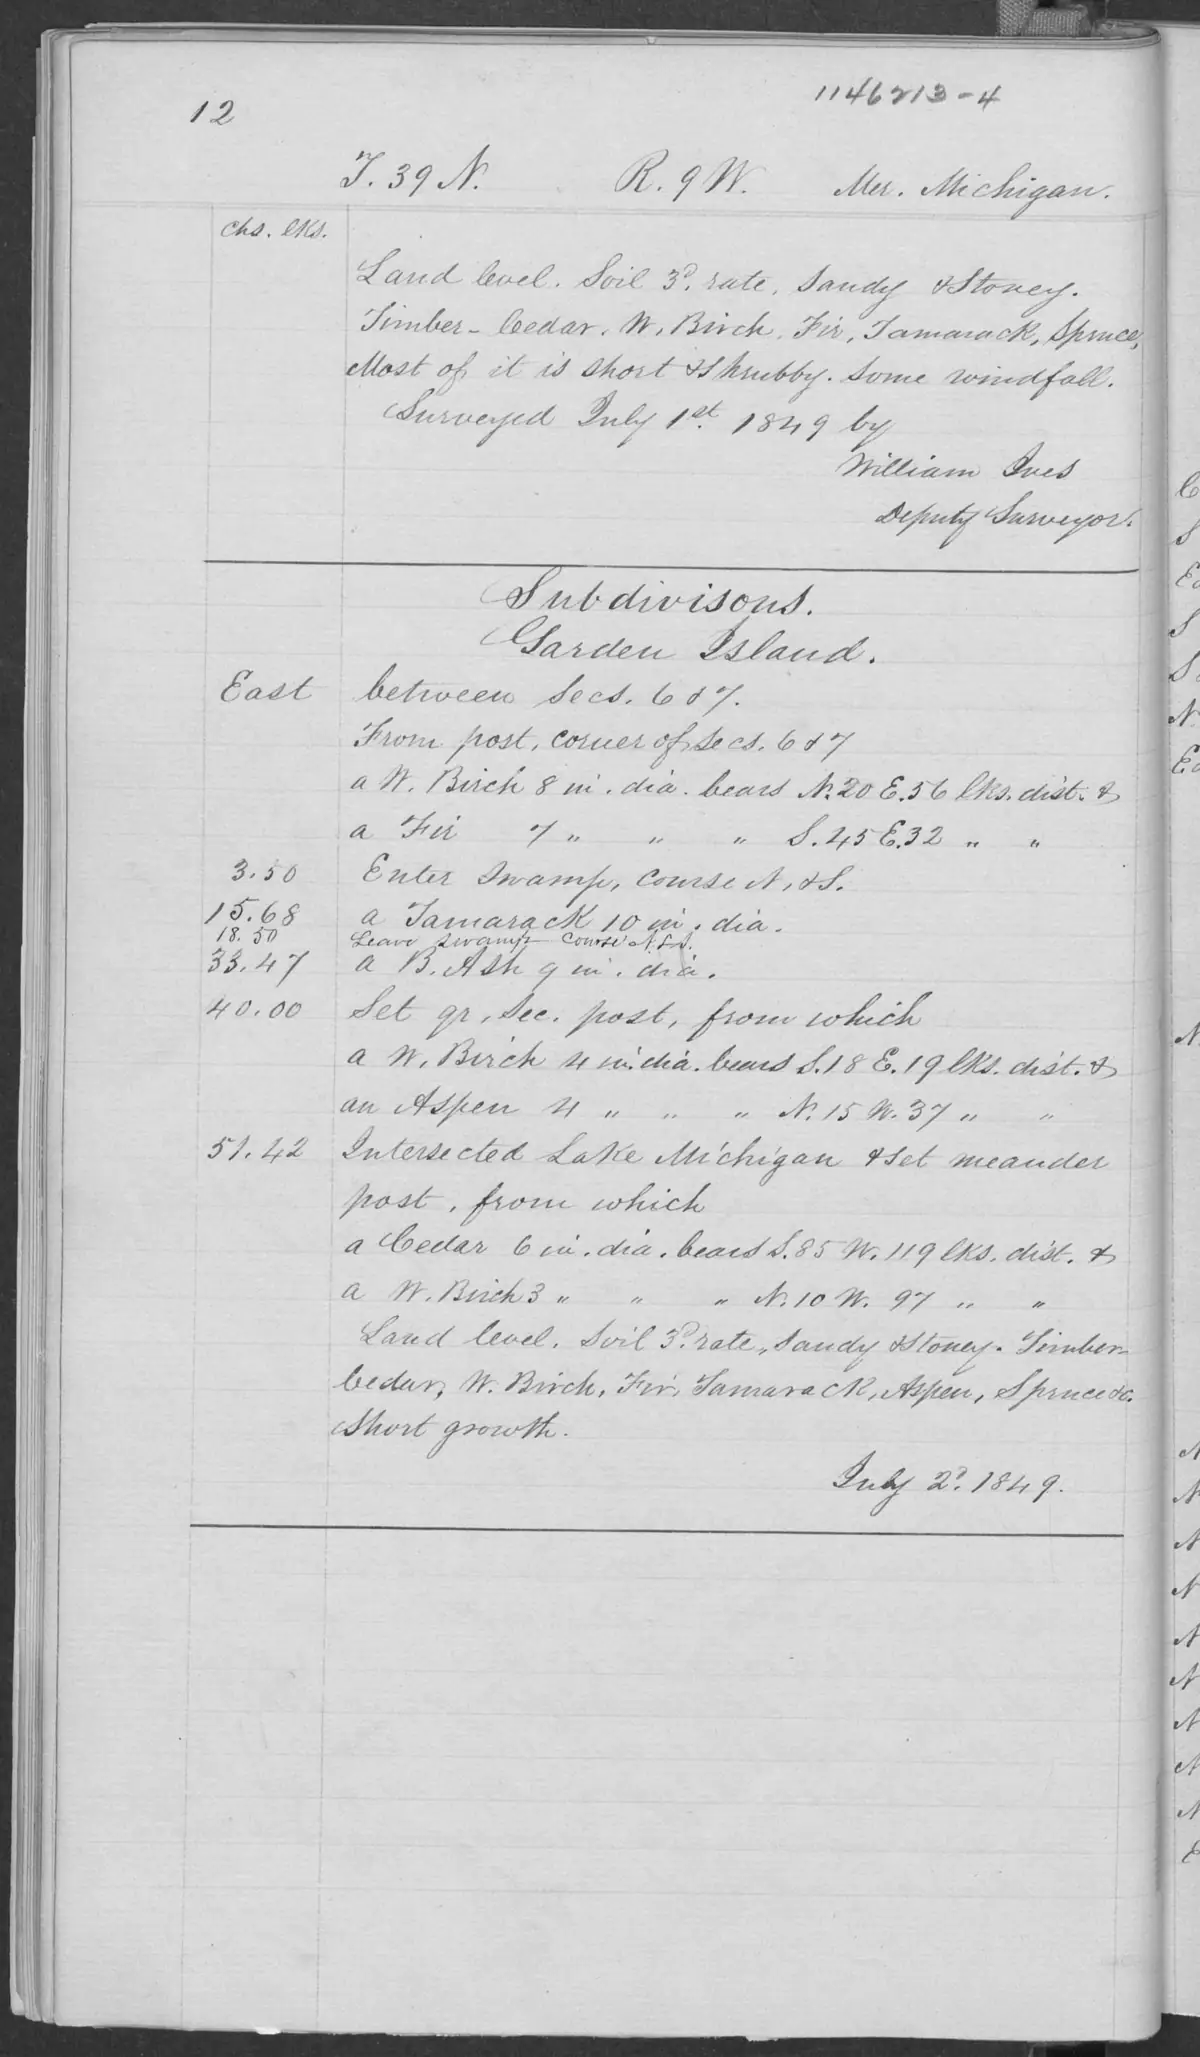 12
1146213-4
T. 39 N. R. 9 W. Mer. Michigan.
chs. lks.
Land level. Soil 3d. rate, Sandy & Stoney.
Timber - Cedar, W. Birch, Fir, Tamarack, Spruce,
Most of it is short & Shrubby. Some windfall.
Surveyed July 1st. 1849 by
William Ives
Deputy Surveyor.
Subdivisons.
Garden Island.
East between Secs. 6 & 7.
From post, corner of Secs. 6 & 7
a W. Birch 8 in. dia. bears N. 20 E. 56 lks. dist. &
a Fir 7 " " " S. 45 E. 32 " "
3.50 Enter Swamp, course N. & S.
15.68 a Tamarack 10 in. dia.
18.50 Leave Swamp Course N. & S.
33.47 a B. Ash 9 in. dia.
40.00 Set qr. Sec. post, from which
a W. Birch 4 in. dia. bears S. 18 E. 19 lks. dist. &
an Aspen 4 " " " N. 15 W. 37 " "
51.42 Intersected Lake Michigan & Set meander
post, from which
a Cedar 6 in. dia. bears S. 85 W. 119 lks. dist. &
a W. Birch 3 " " " N. 10 W. 97 " "
Land level. Soil 3d. rate, Sandy & Stoney. Timber-
Cedar, W. Birch, Fir, Tamarack, Aspen, Spruce &c.
Short growth.
July 2d. 1849.